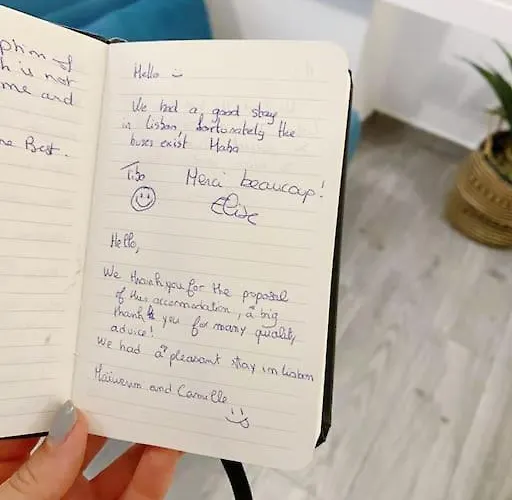 ption of
h is not
me and
ne Best.
Hello :)
We had a good stay
in Lisbon, fortunately the
buses exist Haha
Tibo Merci beaucoup!
Elise
Hello,
We thank you for the proposal
of this accomodation, a big
thank you for many quality
advice!
We had a pleasant stay in Lisbon
and Camille